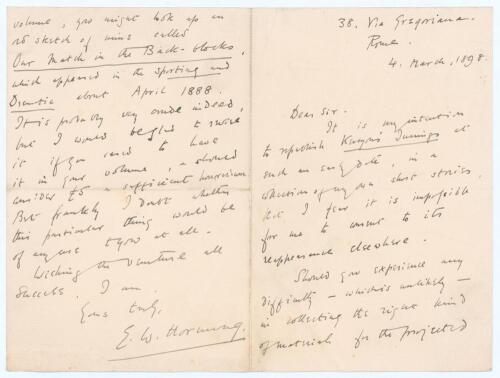 38. Via Gregoriana.
Rome.
4. March, 1898.
Dear Sir.
It is my intention
to republish Kenyon's Innings at
such an early date, in a
collection of my own short stories,
that I fear it is impossible
for me to consent to its
reappearance elsewhere.
Should you experience any
difficulty — which is unlikely —
in collecting the right kind
of material for the projected
volume, you might look up an
old sketch of mine called
Our Match in the Back-blocks,
which appeared in the Sporting and
Dramatic about April 1888.
It is probably very crude indeed,
but I would be glad to revise
it if you cared to have
it in your volume, & should
consider £5 a sufficient honorarium.
But frankly I doubt whether
this particular thing would be
of any use to you at all.
Wishing the venture all
success. I am.
Yours truly,
E. W. Hornung.